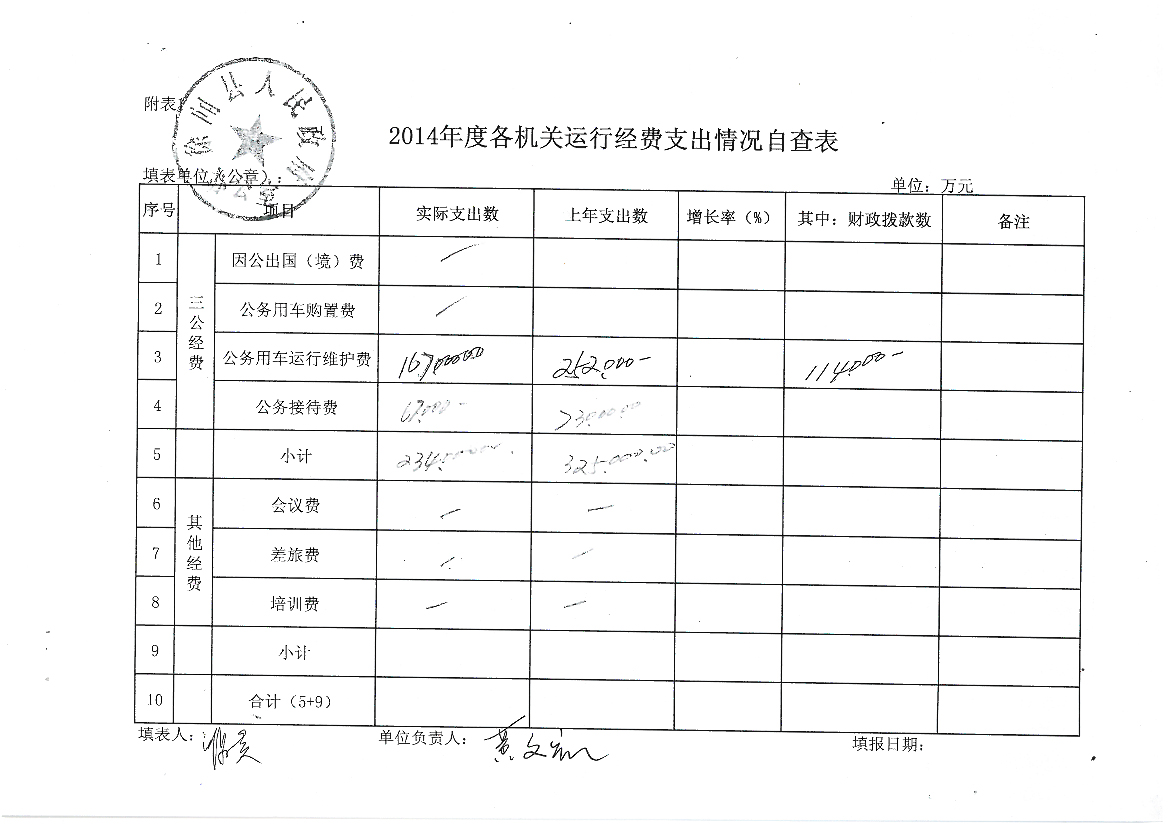 附表
2014年度各机关运行经费支出情况自查表
填表单位（公章）：
单位：万元
序号 项目 实际支出数 上年支出数 增长率（%） 其中：财政拨款数 备注
三公经费
1 因公出国（境）费 —
2 公务用车购置费 —
3 公务用车运行维护费 167000.00 252000- 114000-
4 公务接待费 67000- 73000.00
5 小计 234000.00 325000.00
其他经费
6 会议费 — —
7 差旅费 — —
8 培训费 — —
9 小计
10 合计（5+9）
填表人： 单位负责人： 填报日期：